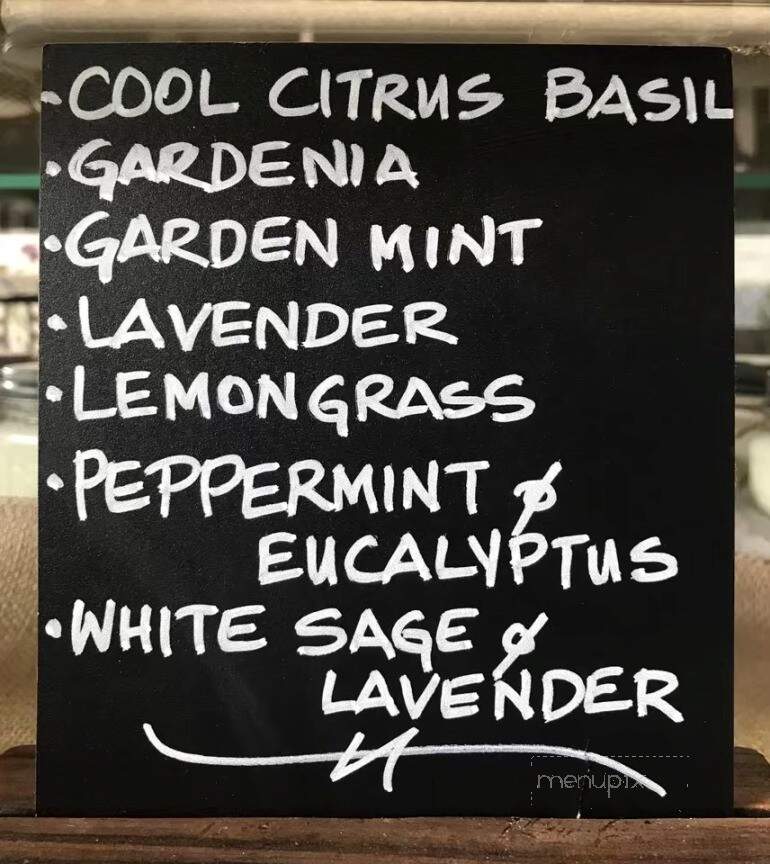 -COOL CITRUS BASIL
•GARDENIA
•GARDEN MINT
•LAVENDER
•LEMONGRASS
•PEPPERMINT &
EUCALYPTUS
•WHITE SAGE &
LAVENDER
menupix